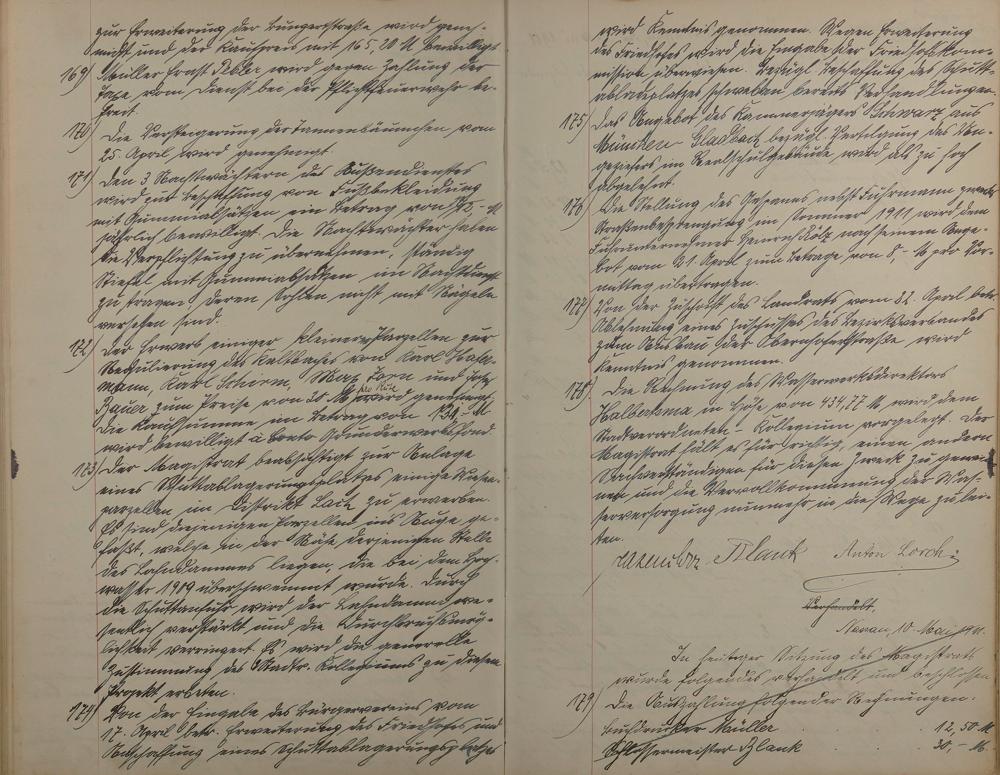 zur Erweiterung der Burgerstraße wird geneh-
migt und der Kaufpreis mit 165,20 M bewilligt
169) Müller Ernst wird gegen Zahlung der
Taxe vom Dienst bei der Pflichtfeuerwehr be-
freit.
170) Die Versteigerung der Tannenbäumchen vom
25. April wird genehmigt.
171) Den 3 Nachtwächtern des Außendienstes
wird zur Beschaffung von Fußbekleidung
mit Gummiabsätzen ein Betrag von M
jährlich bewilligt. Die Nachtwächter haben
die Verpflichtung zu übernehmen, ständig
Stiefel mit Gummiabsätzen im Nachtdienst
zu tragen, deren Sohlen nicht mit Nägeln
versehen sind.
172) Der Erwerb einiger kleiner Parzellen zur
Regulierung des Kaltbaches von Karl
Karl Schirm, Max und
Bauer zum Preise von 25 M pro Rute wird genehmigt.
Die Kaufsumme im Betrag von 134,- M
wird bewilligt à Conto Grunderwerbsfond.
173) Der Magistrat beabsichtigt zur Anlage
eines Schuttablagerungsplatzes einige Wiesen-
parzellen im Distrikt Lach zu erwerben.
Es sind diejenigen Parzellen ins Auge ge-
faßt, welche in der Nähe derjenigen Stelle
des Lahndammes liegen, die bei dem Hoch-
wasser 1909 überschwemmt wurde. Durch
die Schuttanfuhr wird der Lahndamm we-
sentlich verstärkt und die Durchbruchsmög-
lichkeit verringert. Es wird die generelle
Zustimmung des Stadtv. Kollegiums zu diesem
Projekt erbeten.
174) Von der Eingabe des Bürgervereins vom
17. April betr. Erweiterung des Friedhofes und
Anschaffung eines Schuttablagerungsplatzes
wird Kenntnis genommen. Wegen Erweiterung
des Friedhofes wird die Eingabe der Friedhofskom-
mission überwiesen. Bezügl. Beschaffung des Schutt-
abladeplatzes schweben bereits Verhandlungen.
175) Das Angebot des Kammerjägers Schwarz aus
München-Gladbach bezügl. Vertilgung des Un-
geziefers im Realschulgebäude, wird als zu hoch
abgelehnt.
176) Die Stellung des Gespanns nebst Fuhrmann zwecks
Straßenbesprengung im Sommer 1911 wird dem
Fuhrunternehmer Heinrich nach seinem Ange-
bot vom 21. April zum Betrage von 8,- M pro Vor-
mittag übertragen.
177) Von der Zuschrift des Landrats vom 22. April betr.
Ablehnung eines Zuschusses des Bezirksverbandes
zum Ausbau der wird
Kenntnis genommen.
178) Die Rechnung des Wasserwerksdirektors
Halbertsma in Höhe von 434,77 M wird dem
Stadtverordneten-Kollegium vorgelegt. Der
Magistrat hält es für richtig, einen andern
Sachverständigen für diesen Zweck zu gewin-
nen und die Vervollkommnung der Was-
serversorgung nunmehr in die Wege zu lei-
ten.
Plank Anton Lorch
Verhandelt.
10. Mai 1911.
In heutiger Sitzung des Magistrats
wurde folgendes verhandelt und beschlossen
179) Die Auszahlung folgender Rechnungen.
Buchdrucker Müller 12,50 M
Schlossermeister Blank 30,- M.